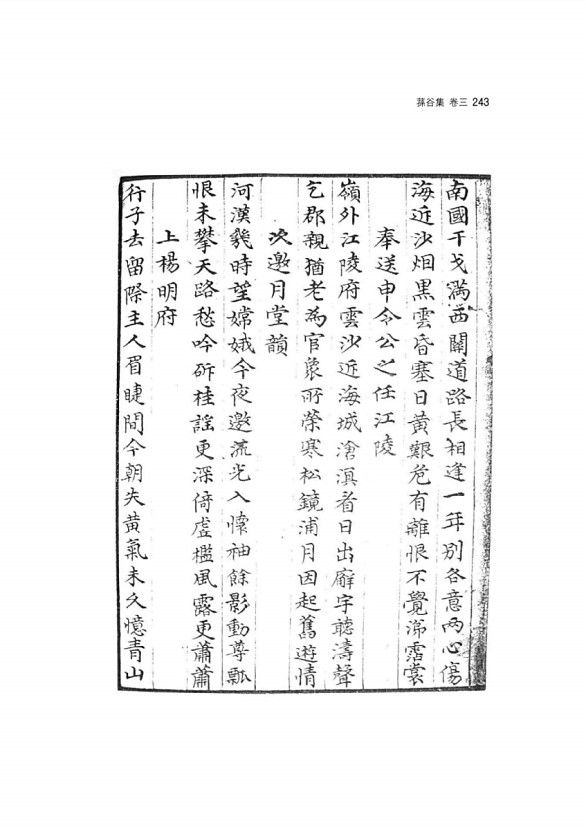 蓀谷集 卷三 243
南國干戈滿西關道路長相逢一年別各意兩心傷
海近沙烟黑雲昏塞日黃艱危有離恨不覺涕霑裳
奉送申令公之任江陵
嶺外江陵府雲沙近海城滄溟看日出廨宇聽濤聲
乞郡親猶老為官衆所榮寒松鏡浦月因起舊遊情
次邀月堂韻
河漢幾時望嫦娥今夜邀流光入懷袖餘影動尊瓢
恨未攀天路愁吟斫桂謠更深倚虛檻風露更蕭蕭
上楊明府
行子去留際主人眉睫間今朝失黃氣未久憶青山